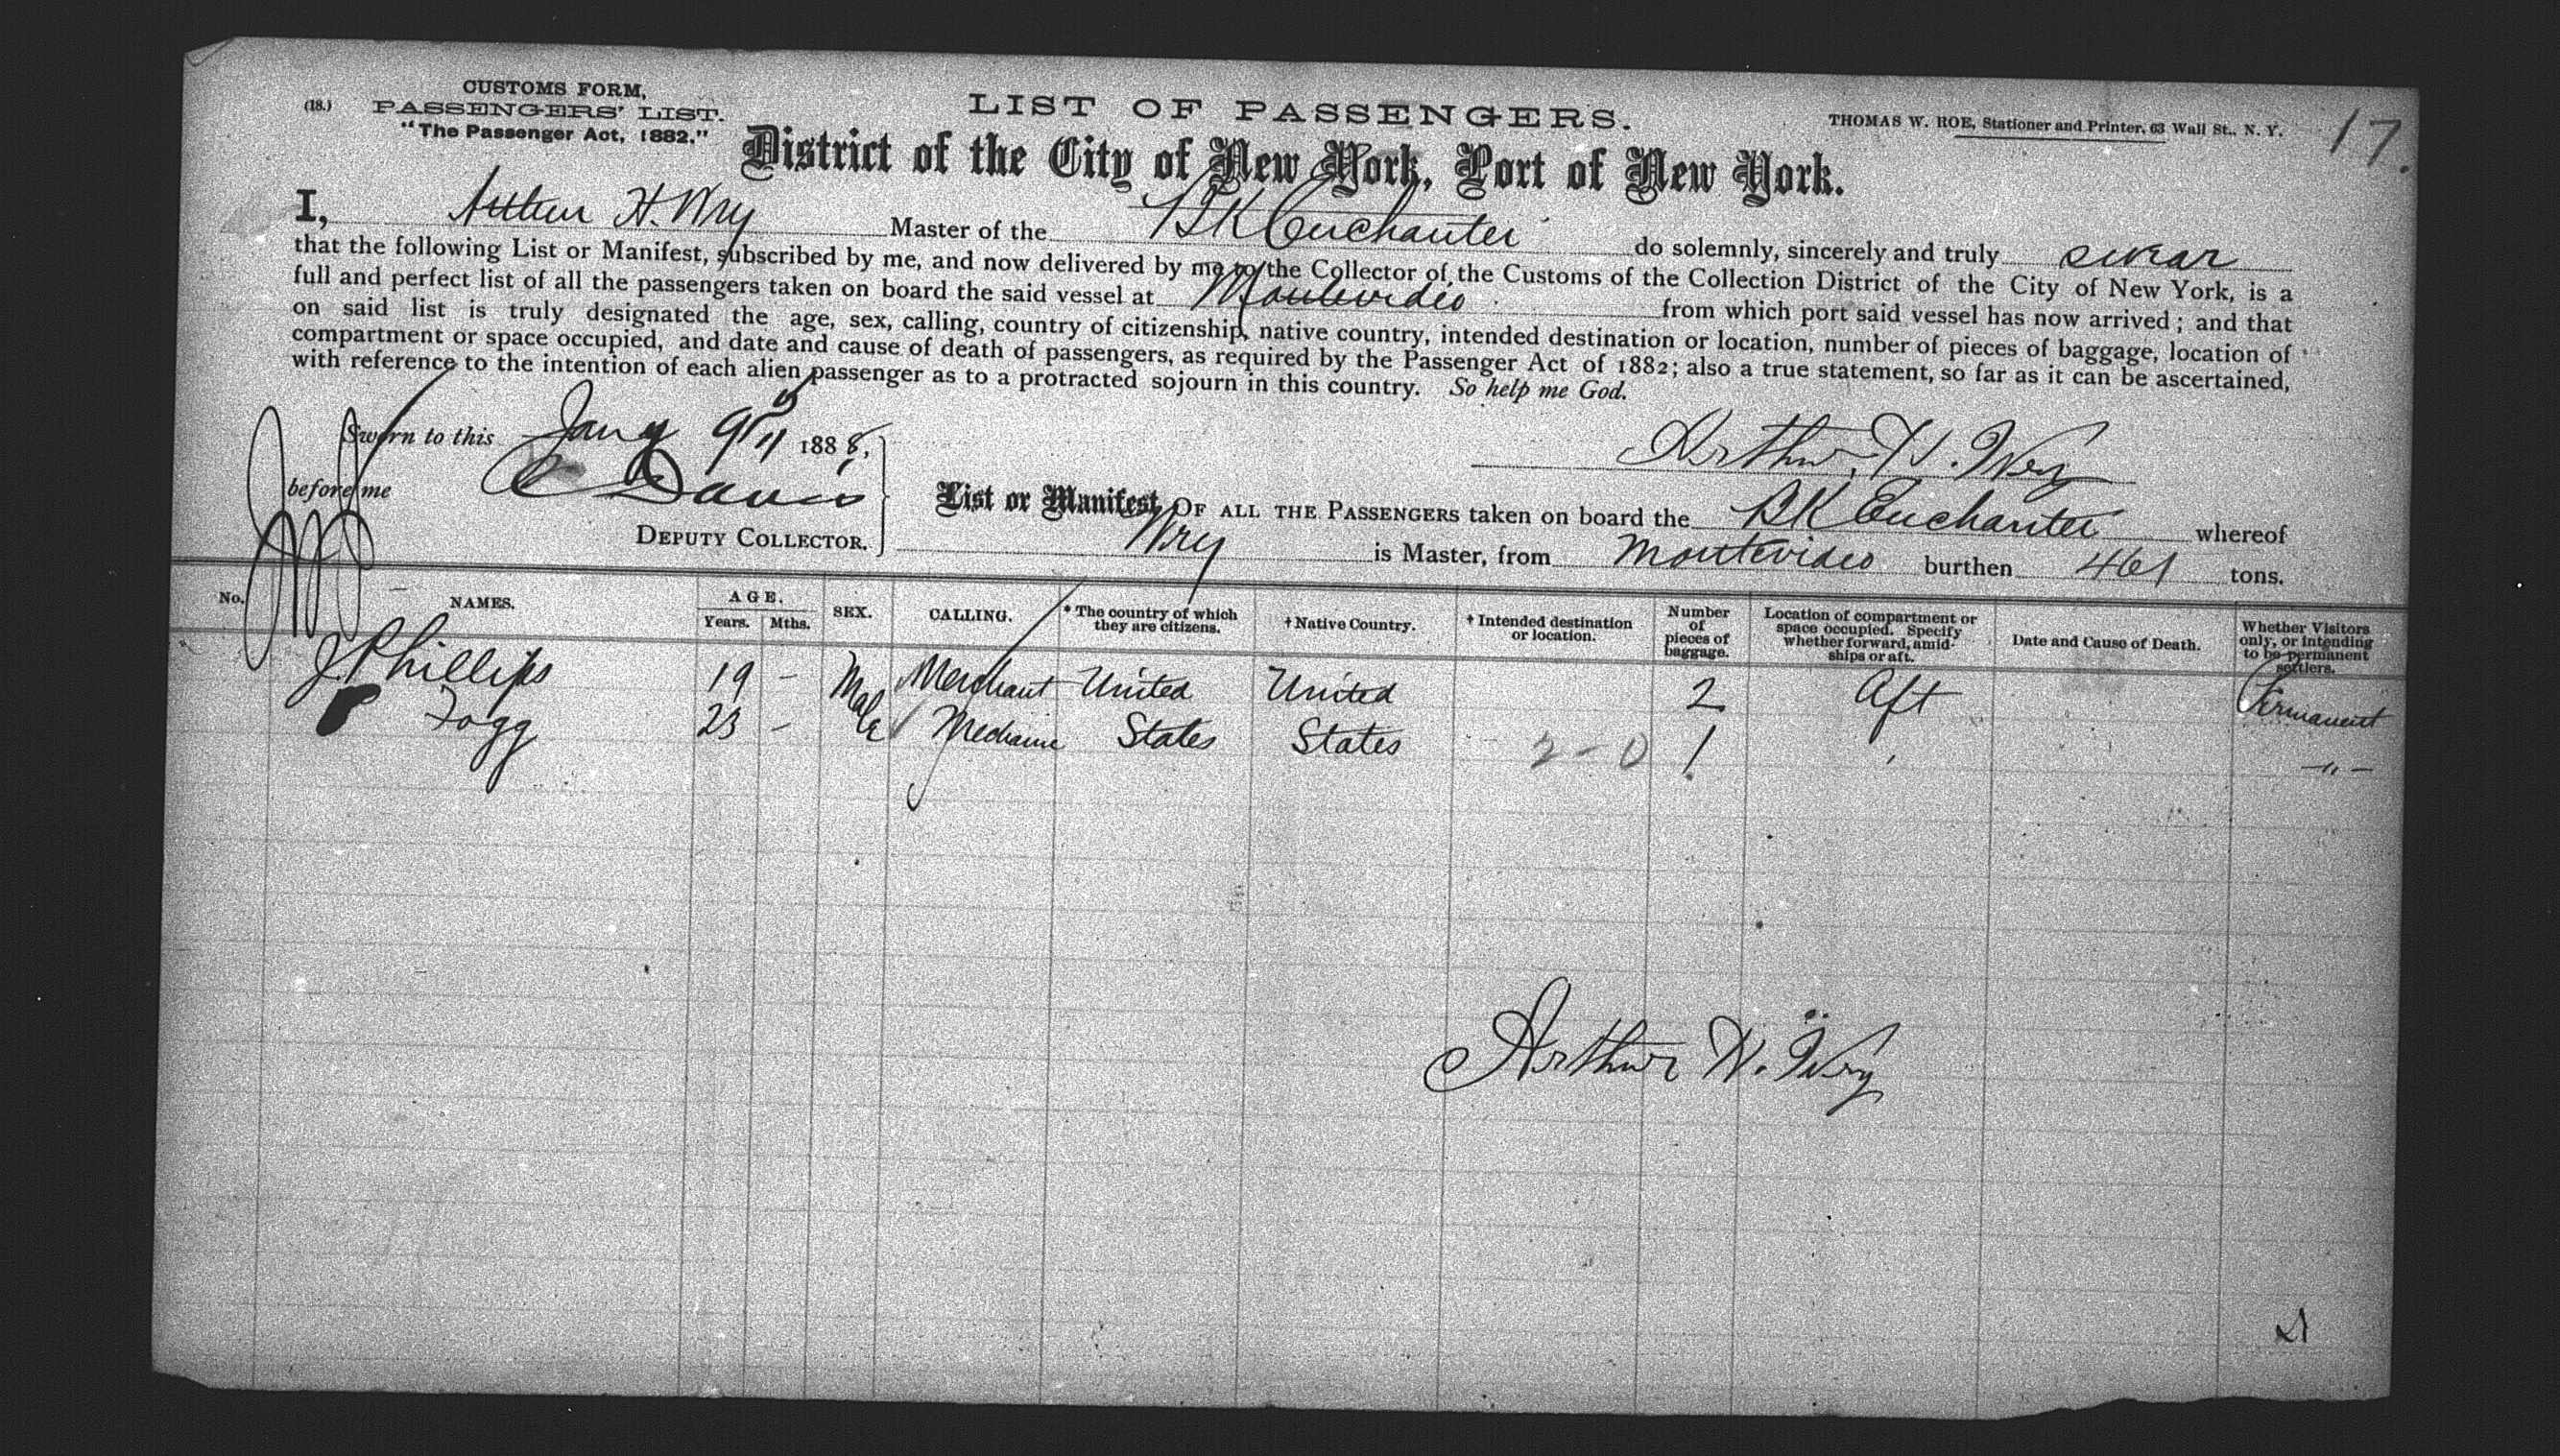 CUSTOMS FORM,
(18.) PASSENGERS' LIST.
"The Passenger Act, 1882."
LIST OF PASSENGERS.
THOMAS W. ROE, Stationer and Printer, 63 Wall St., N. Y.
17.
District of the City of New York, Port of New York.
I, Arthur H. Wry Master of the BK Enchanter do solemnly, sincerely and truly swear
that the following List or Manifest, subscribed by me, and now delivered by me to the Collector of the Customs of the Collection District of the City of New York, is a
full and perfect list of all the passengers taken on board the said vessel at Montevideo from which port said vessel has now arrived; and that
on said list is truly designated the age, sex, calling, country of citizenship, native country, intended destination or location, number of pieces of baggage, location of
compartment or space occupied, and date and cause of death of passengers, as required by the Passenger Act of 1882; also a true statement, so far as it can be ascertained,
with reference to the intention of each alien passenger as to a protracted sojourn in this country. So help me God.
Sworn to this Jany 9 1888,
Arthur H. Wry
before me Davis
DEPUTY COLLECTOR.
List or Manifest, OF ALL THE PASSENGERS taken on board the BK Enchanter whereof
Wry is Master, from Montevideo burthen 461 tons.
No. NAMES. AGE. Years. Mths. SEX. CALLING. * The country of which they are citizens. † Native Country. † Intended destination or location. Number of pieces of baggage. Location of compartment or space occupied. Specify whether forward, amid-ships or aft. Date and Cause of Death. Whether Visitors only, or intending to be permanent settlers.
J Phillips 19 - Male Merchant United United 2 Aft Permanent
Fogg 23 - States States 2-0 1 ' -"-
Arthur H. Wry